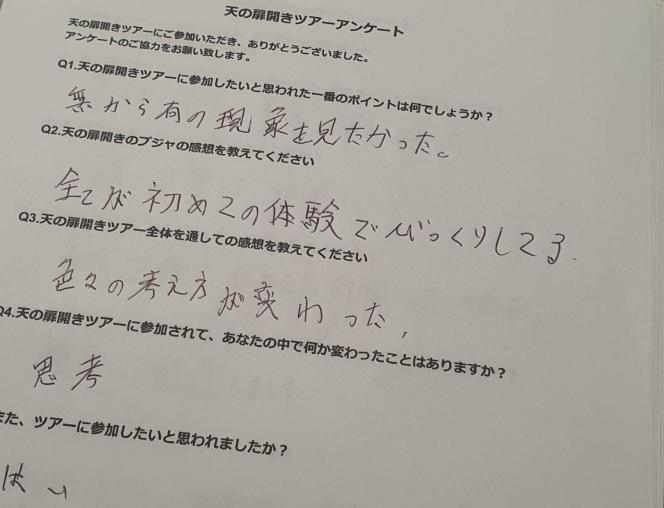 天の扉開きツアーアンケート
天の扉開きツアーにご参加いただき、ありがとうございました。
アンケートのご協力をお願い致します。
Q1.天の扉開きツアーに参加したいと思われた一番のポイントは何でしょうか？
無から有の現象を見たかった。
Q2.天の扉開きのプジャの感想を教えてください
全てが初めての体験でびっくりしてる.
Q3.天の扉開きツアー全体を通しての感想を教えてください
色々の考え方が変わった,
Q4.天の扉開きツアーに参加されて、あなたの中で何か変わったことはありますか？
思考
また、ツアーに参加したいと思われましたか？
はい